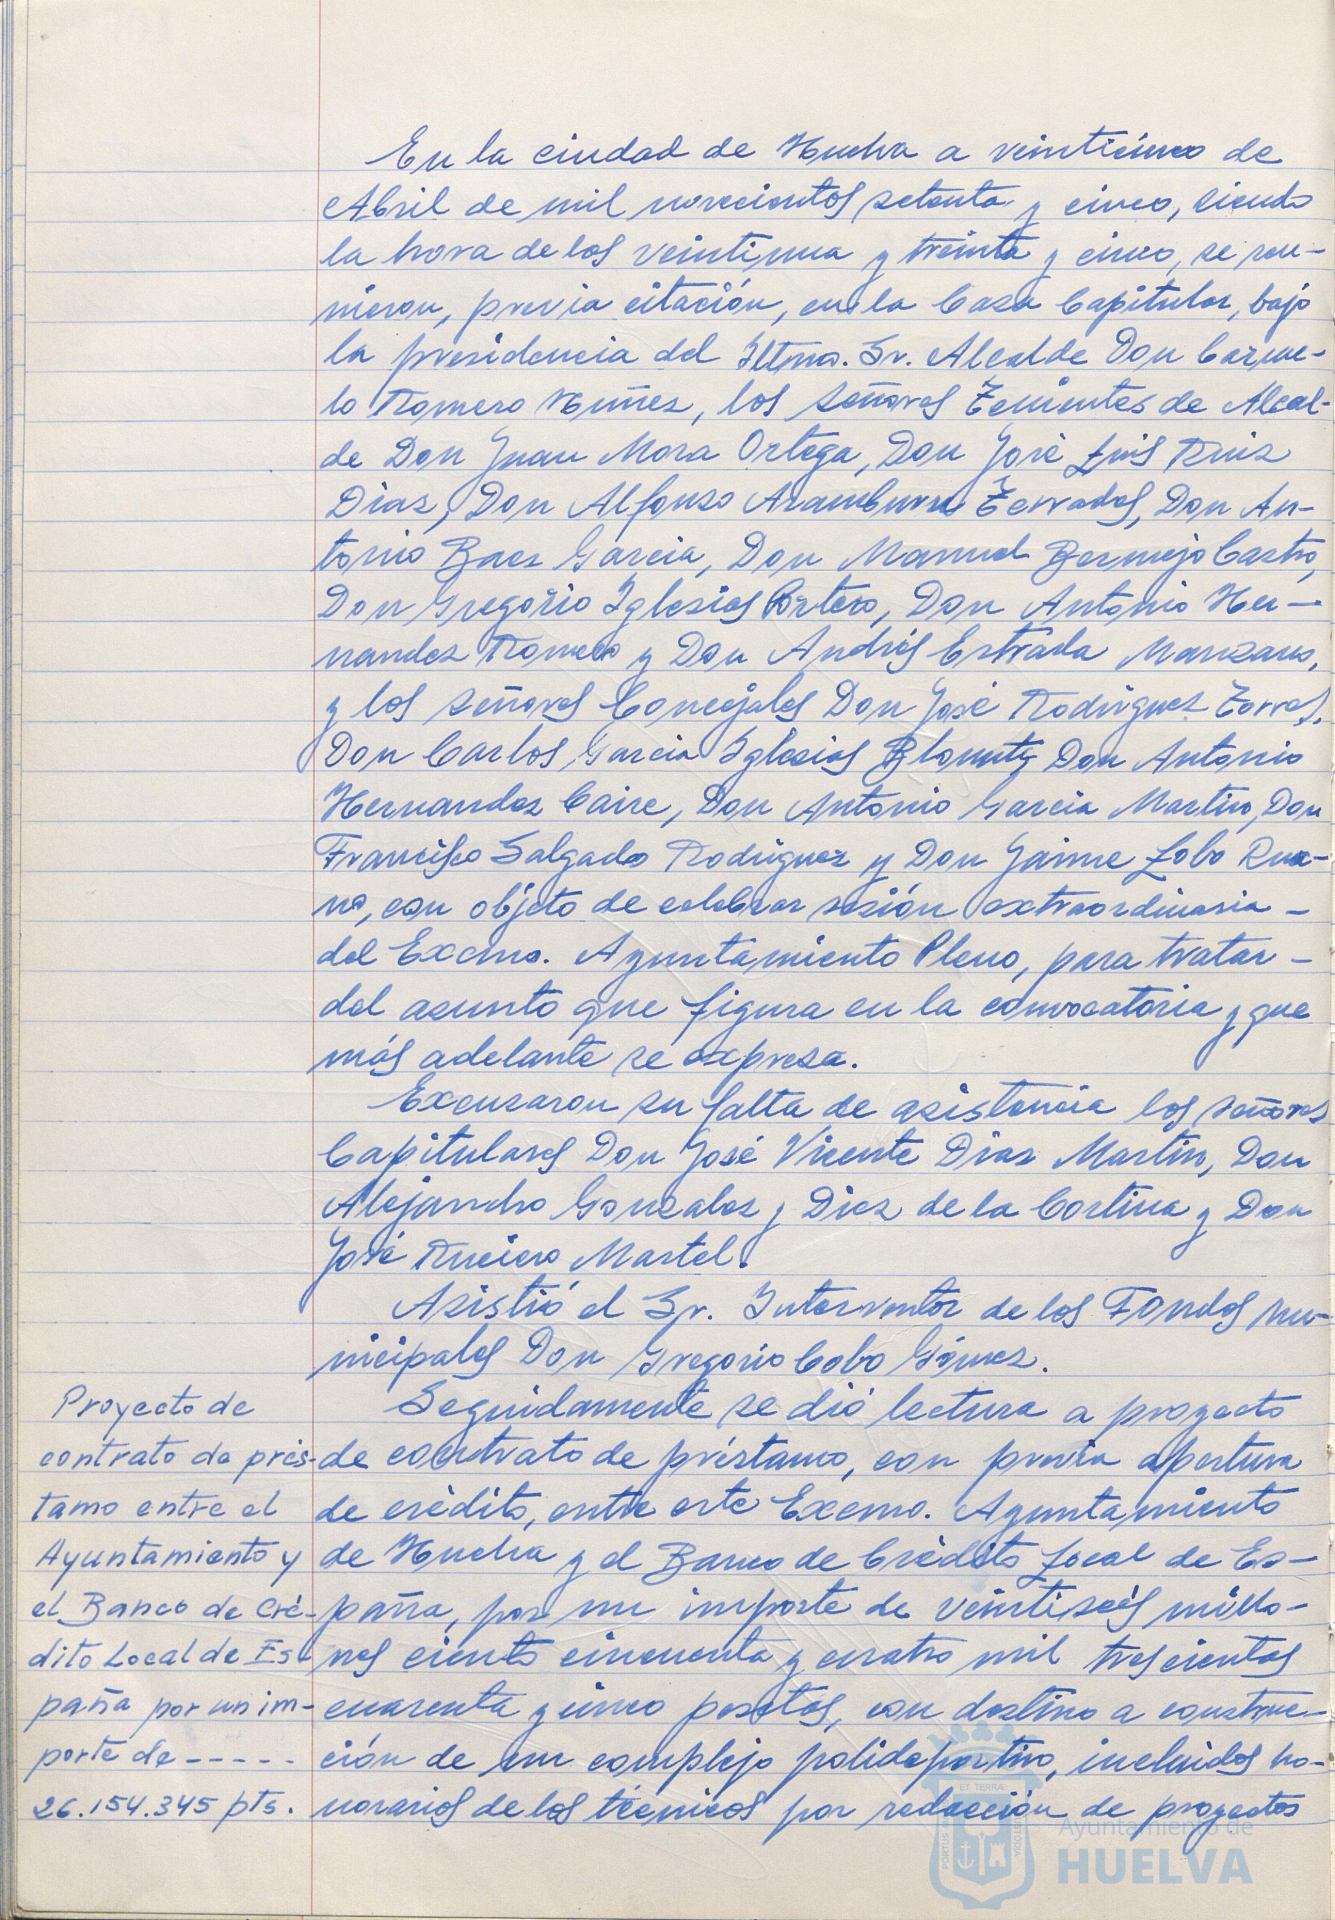 En la ciudad de Huelva a veinticinco de
Abril de mil novecientos setenta y cinco, siendo
la hora de las veintiuna y treinta y cinco, se reu-
nieron, previa citación, en la Casa Capitular, bajo
la presidencia del Iltmo. Sr. Alcalde Don Carme-
lo Romero Núñez, los señores Tenientes de Alcal-
de Don Juan Mora Ortega, Don José Luis Ruiz
Díaz, Don Alfonso Aramburu Terrades, Don An-
tonio Baez García, Don Manuel Bermejo Castro,
Don Gregorio Iglesias Portero, Don Antonio Her-
nandez Romero y Don Andrés Estrada Manzano,
y los señores Concejales Don José Rodriguez Torres,
Don Carlos Garcia Iglesias Don Antonio
Hernandez Caire, Don Antonio Garcia Martin, Don
Francisco Salgado Rodriguez y Don Jaime Lobo Rua-
no, con objeto de celebrar sesión extraordinaria -
del Excmo. Ayuntamiento Pleno, para tratar -
del asunto que figura en la convocatoria y que
más adelante se expresa.
Excusaron su falta de asistencia los señores
Capitulares Don José Vicente Diaz Martin, Don
Alejandro Gonzalez y Diez de la Cortina y Don
José Martel.
Asistió el Sr. Interventor de los Fondos Mu-
nicipales Don Gregorio Cobo Gómez.
Proyecto de
contrato de prés-
tamo entre el
Ayuntamiento y
el Banco de Cré-
dito Local de Es-
paña por un im-
porte de -----
26.154.345 pts.
Seguidamente se dió lectura a proyecto
de contrato de préstamo, con previa apertura
de crédito, entre este Excmo. Ayuntamiento
de Huelva y el Banco de Crédito Local de Es-
paña, por un importe de veintiséis millo-
nes ciento cincuenta y cuatro mil trescientas
cuarenta y cinco pesetas, con destino a construc-
ción de un complejo polideportivo, incluidos ho-
norarios de los técnicos por redacción de proyectos
ET TERRÆ
Ayuntamiento de
HUELVA